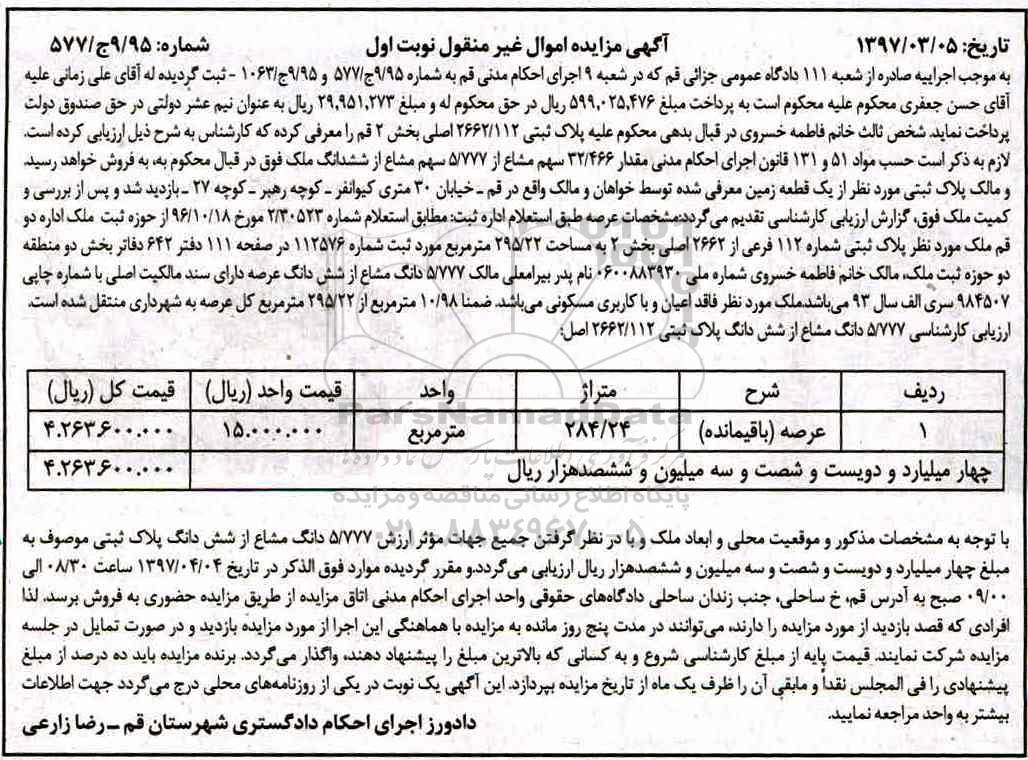 تاریخ: ۱۳۹۷/۰۳/۰۵
آگهی مزایده اموال غیر منقول نوبت اول
شماره: ۹/۹۵ج/۵۷۷
به موجب اجراییه صادره از شعبه ۱۱۱ دادگاه عمومی جزائی قم که در شعبه ۹ اجرای احکام مدنی قم به شماره ۹/۹۵ج/۵۷۷ و ۹/۹۵ج/۱۰۶۳ - ثبت گردیده له آقای علی زمانی علیه
آقای حسن جعفری محکوم علیه محکوم است به پرداخت مبلغ ۵۹۹,۰۲۵,۴۷۶ ریال در حق محکوم له و مبلغ ۲۹,۹۵۱,۲۷۳ ریال به عنوان نیم عشر دولتی در حق صندوق دولت
پرداخت نماید. شخص ثالث خانم فاطمه خسروی در قبال بدهی محکوم علیه پلاک ثبتی ۲۶۶۲/۱۱۲ اصلی بخش ۲ قم را معرفی کرده که کارشناس به شرح ذیل ارزیابی کرده است.
لازم به ذکر است حسب مواد ۵۱ و ۱۳۱ قانون اجرای احکام مدنی مقدار ۳۲/۴۶۶ سهم مشاع از ۵/۷۷۷ سهم مشاع از ششدانگ ملک فوق در قبال محکوم به، به فروش خواهد رسید.
و مالک پلاک ثبتی مورد نظر از یک قطعه زمین معرفی شده توسط خواهان و مالک واقع در قم ـ خیابان ۳۰ متری کیوانفر ـ کوچه رهبر ـ کوچه ۲۷ ـ بازدید شد و پس از بررسی و
کمیت ملک فوق، گزارش ارزیابی کارشناسی تقدیم می گردد:مشخصات عرصه طبق استعلام اداره ثبت: مطابق استعلام شماره ۲/۳۰۵۲۳ مورخ ۹۶/۱۰/۱۸ از حوزه ثبت ملک اداره دو
قم ملک مورد نظر پلاک ثبتی شماره ۱۱۲ فرعی از ۲۶۶۲ اصلی بخش ۲ به مساحت ۲۹۵/۲۲ مترمربع مورد ثبت شماره ۱۱۲۵۷۶ در صفحه ۱۱۱ دفتر ۶۴۲ دفاتر بخش دو منطقه
دو حوزه ثبت ملک، مالک خانم فاطمه خسروی شماره ملی ۰۶۰۰۸۸۳۹۳۰ نام پدر بیرامعلی مالک ۵/۷۷۷ دانگ مشاع از شش دانگ عرصه دارای سند مالکیت اصلی با شماره چاپی
۹۸۴۵۰۷ سری الف سال ۹۳ می‌باشد.ملک مورد نظر فاقد اعیان و با کاربری مسکونی می‌باشد. ضمنا ۱۰/۹۸ مترمربع از ۲۹۵/۲۲ مترمربع کل عرصه به شهرداری منتقل شده است.
ارزیابی کارشناسی ۵/۷۷۷ دانگ مشاع از شش دانگ پلاک ثبتی ۲۶۶۲/۱۱۲ اصل:
ردیف شرح متراژ واحد قیمت واحد (ریال) قیمت کل (ریال)
۱ عرصه (باقیمانده) ۲۸۴/۲۴ مترمربع ۱۵.۰۰۰.۰۰۰ ۴.۲۶۳.۶۰۰.۰۰۰
چهار میلیارد و دویست و شصت و سه میلیون و ششصدهزار ریال ۴.۲۶۳.۶۰۰.۰۰۰
ParsNamadData
پایگاه اطلاع رسانی مناقصه و مزایده
۰۲۱-۸۸۳۴۹۶۷۰-۵
با توجه به مشخصات مذکور و موقعیت محلی و ابعاد ملک و با در نظر گرفتن جمیع جهات مؤثر ارزش ۵/۷۷۷ دانگ مشاع از شش دانگ پلاک ثبتی موصوف به
مبلغ چهار میلیارد و دویست و شصت و سه میلیون و ششصدهزار ریال ارزیابی می‌گردد.و مقرر گردیده موارد فوق الذکر در تاریخ ۱۳۹۷/۰۴/۰۴ ساعت ۰۸/۳۰ الی
۰۹/۰۰ صبح به آدرس قم، خ ساحلی، جنب زندان ساحلی دادگاه‌های حقوقی واحد اجرای احکام مدنی اتاق مزایده از طریق مزایده حضوری به فروش برسد. لذا
افرادی که قصد بازدید از مورد مزایده را دارند، می‌توانند در مدت پنج روز مانده به مزایده با هماهنگی این اجرا از مورد مزایده بازدید و در صورت تمایل در جلسه
مزایده شرکت نمایند. قیمت پایه از مبلغ کارشناسی شروع و به کسانی که بالاترین مبلغ را پیشنهاد دهند، واگذار می‌گردد. برنده مزایده باید ده درصد از مبلغ
پیشنهادی را فی المجلس نقداً و مابقی آن را ظرف یک ماه از تاریخ مزایده بپردازد. این آگهی یک نوبت در یکی از روزنامه‌های محلی درج می‌گردد جهت اطلاعات
بیشتر به واحد مراجعه نمایید.
دادورز اجرای احکام دادگستری شهرستان قم ـ رضا زارعی